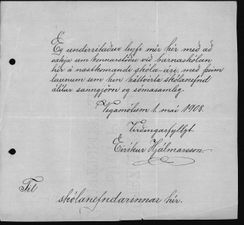 Eg undirritaður leyfi mér hér með að
sækja um kennarstöðu við barnaskólann
hér á næstkomandi skóla-ári, með þeim
launum sem hin háttvirta skólanefnd
álítur sanngjörn og sómasamleg.
Vegamótum 1. maí 1908.
Virðingarfyllst
Eiríkur Hjálmarsson
Til
skólanefndarinnar hér.